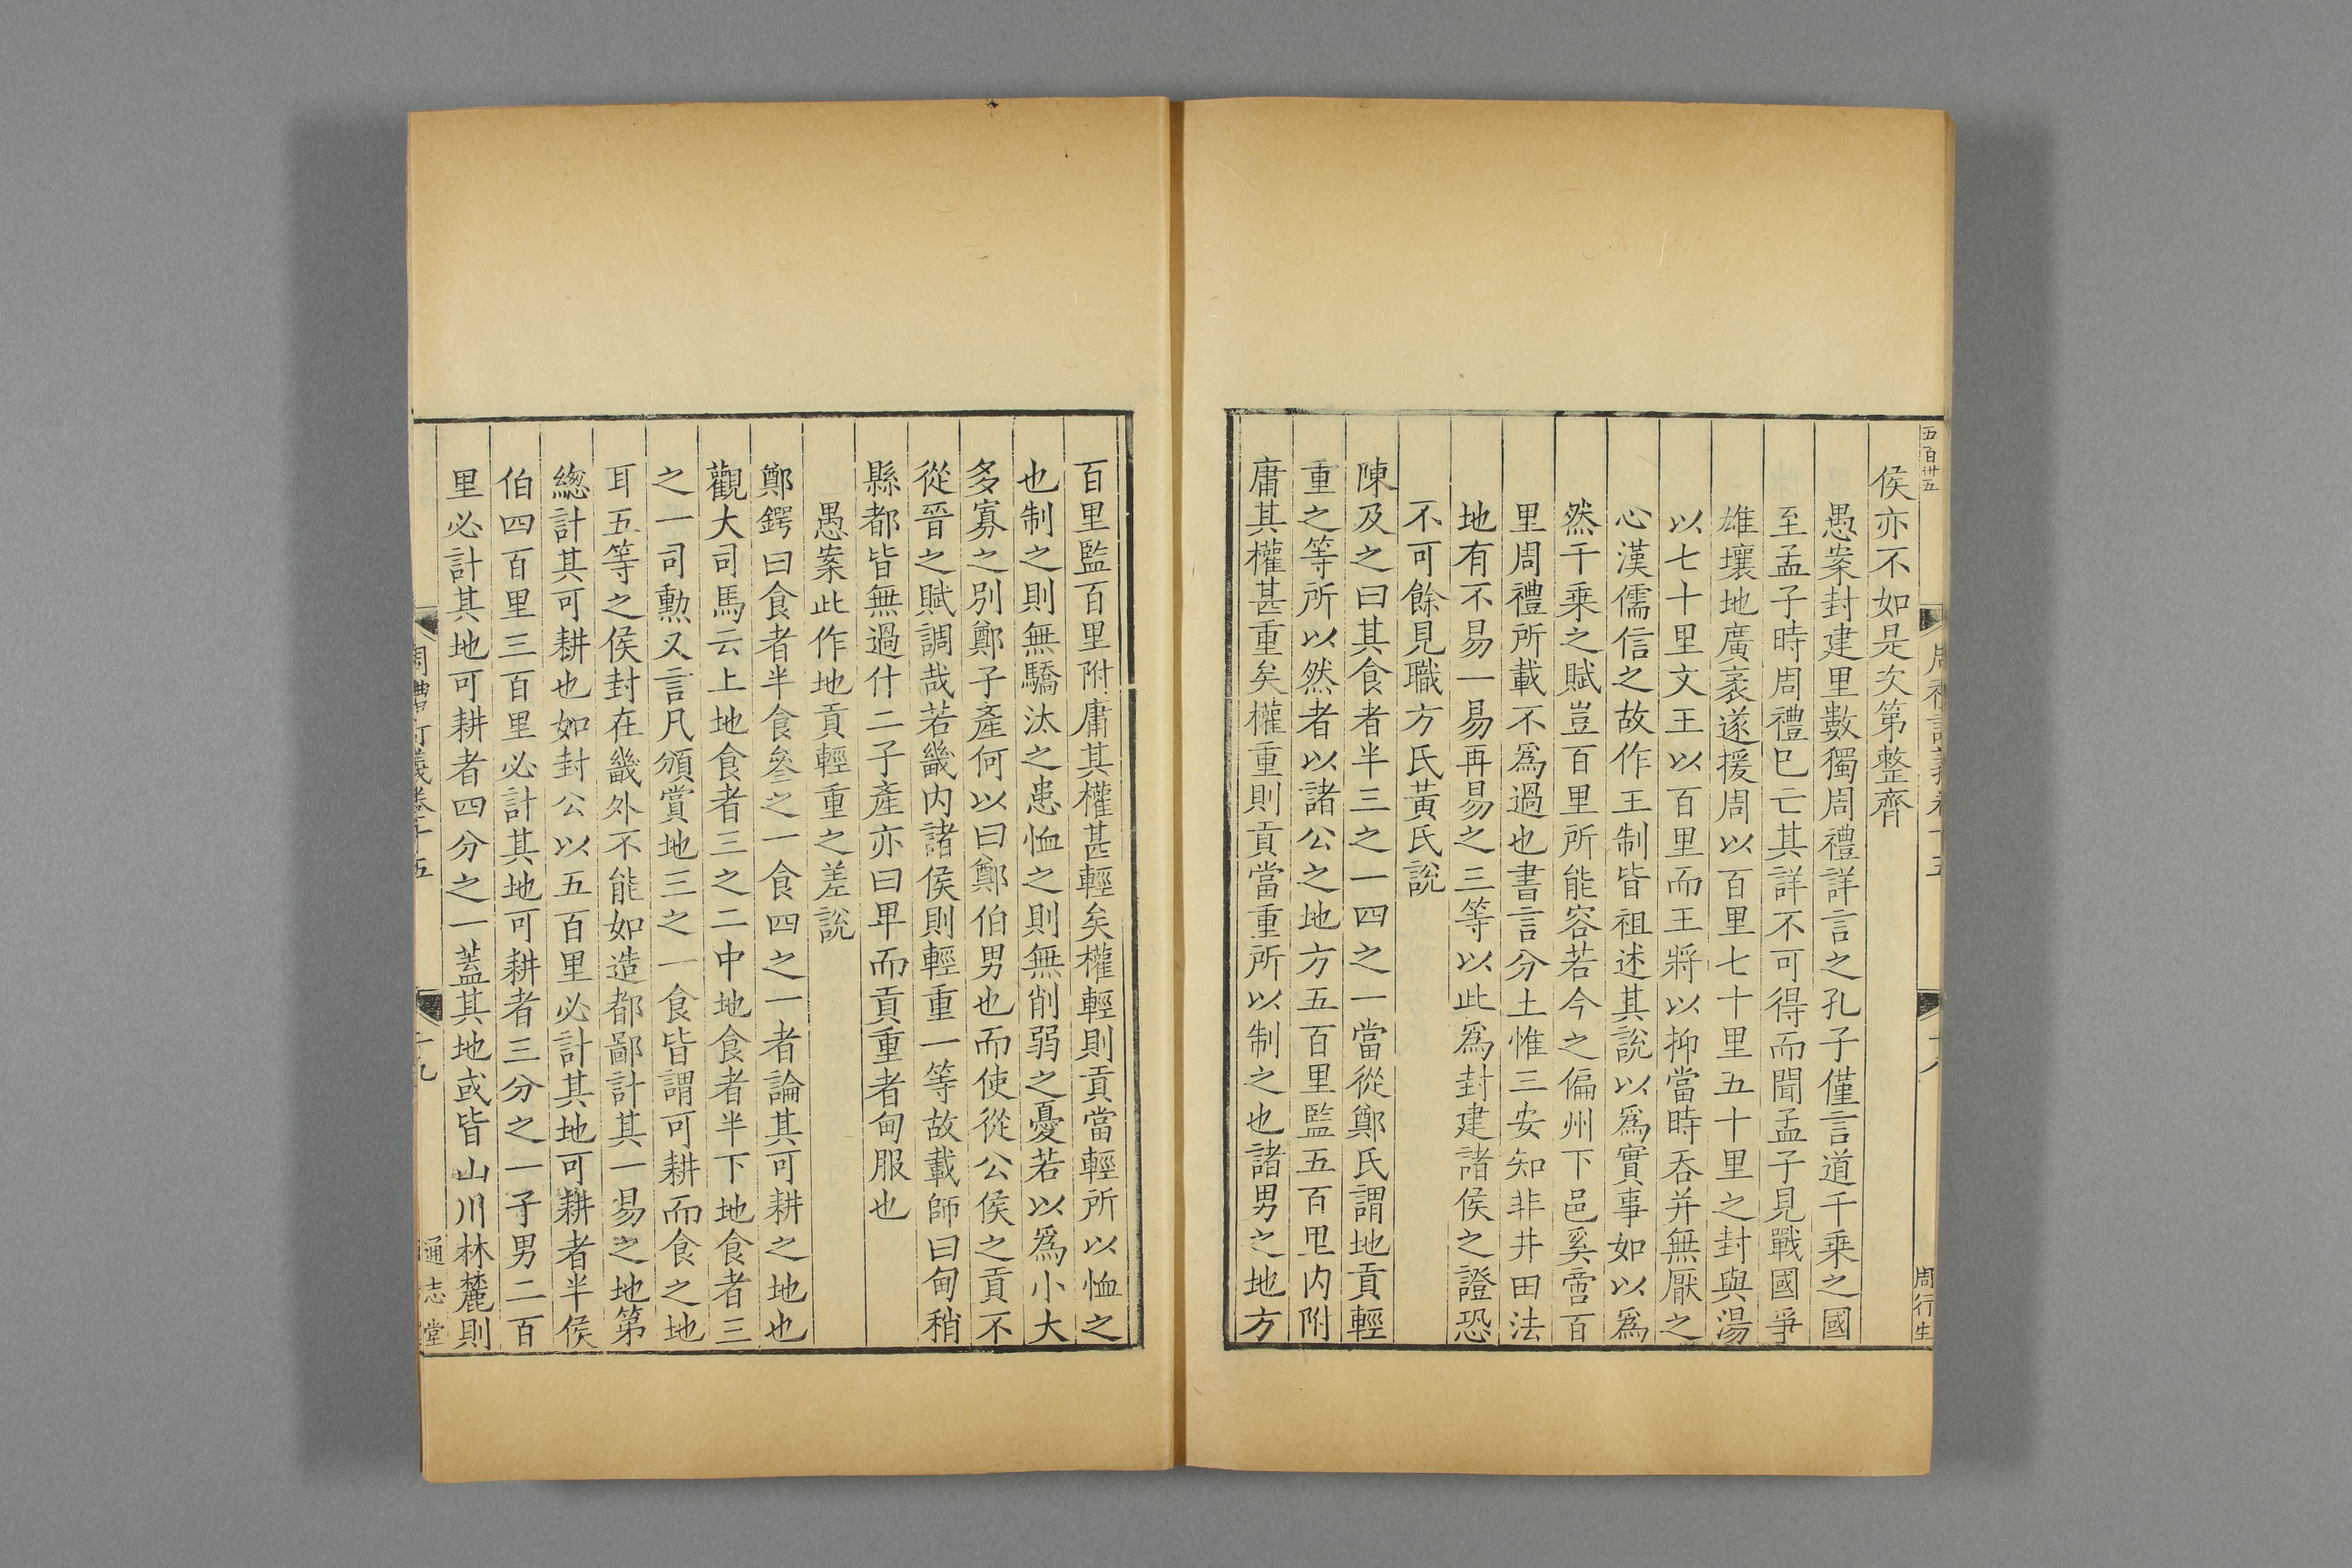 五百卅五
周禮訂義卷十五
十八
周行生
侯亦不如是次第整齊
愚案封建里數獨周禮詳言之孔子僅言道千乘之國
至孟子時周禮已亡其詳不可得而聞孟子見戰國爭
雄壤地廣袤遂援周以百里七十里五十里之封與湯
以七十里文王以百里而王將以抑當時吞并無厭之
心漢儒信之故作王制皆祖述其說以爲實事如以爲
然千乘之賦豈百里所能容若今之偏州下邑奚啻百
里周禮所載不爲過也書言分土惟三安知非井田法
地有不易一易再易之三等以此爲封建諸侯之證恐
不可餘見職方氏黃氏說
陳及之曰其食者半三之一四之一當從鄭氏謂地貢輕
重之等所以然者以諸公之地方五百里監五百里內附
庸其權甚重矣權重則貢當重所以制之也諸男之地方
百里監百里附庸其權甚輕矣權輕則貢當輕所以恤之
也制之則無驕汰之患恤之則無削弱之憂若以爲小大
多寡之別鄭子產何以曰鄭伯男也而使從公侯之貢不
從晉之賦調哉若畿內諸侯則輕重一等故載師曰甸稍
縣都皆無過什二子產亦曰卑而貢重者甸服也
愚案此作地貢輕重之差說
鄭鍔曰食者半食參之一食四之一者論其可耕之地也
觀大司馬云上地食者三之二中地食者半下地食者三
之一司勲又言凡頒賞地三之一食皆謂可耕而食之地
耳五等之侯封在畿外不能如造都鄙計其一易之地第
緫計其可耕也如封公以五百里必計其地可耕者半侯
伯四百里三百里必計其地可耕者三分之一子男二百
里必計其地可耕者四分之一蓋其地或皆山川林麓則
周禮訂義卷十五
十九
通志堂